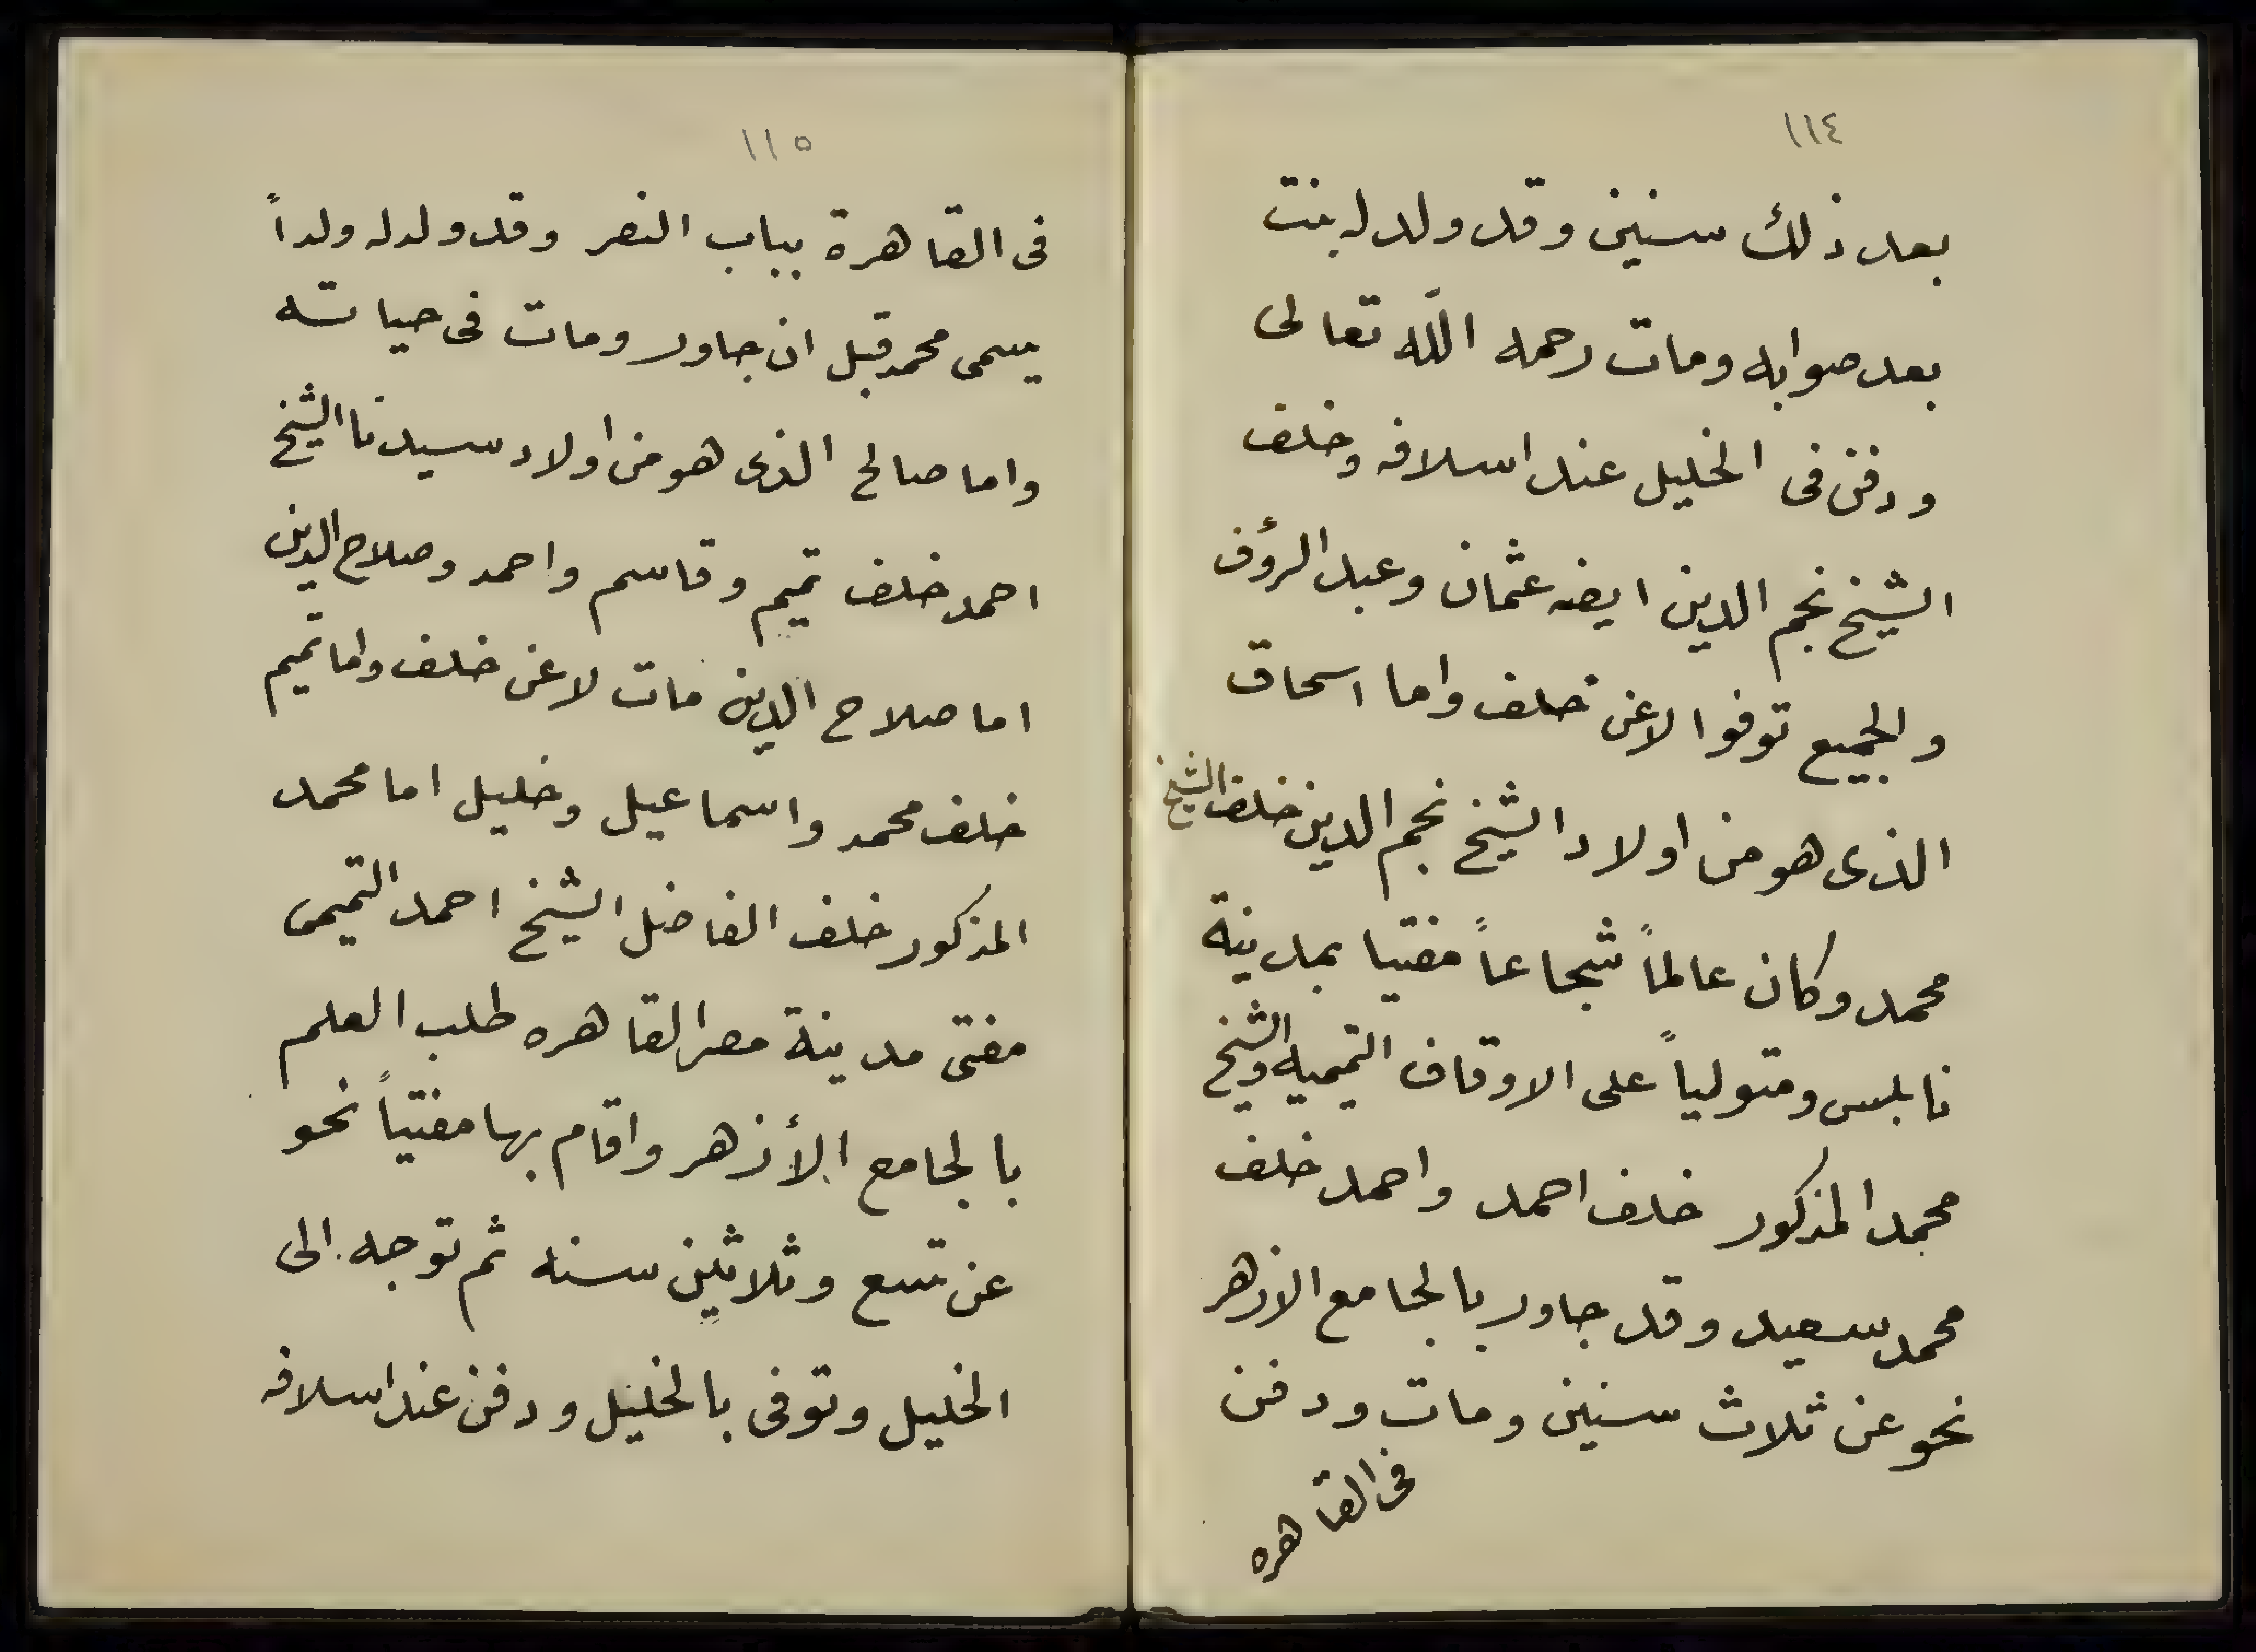 ١١٤
بعد ذلك سنين وقد ولد له بنت
بعد صوابه ومات رحمه الله تعالى
ودفن فى الخليل عند اسلافه وخلف
الشيخ نجم الدين ايضه عثمان وعبد الرؤف
والجميع توفوا لاعن خلف واما اسحاق
الذى هو من اولاد الشيخ نجم الدين خلف الشيخ
محمد وكان عالماً شجاعاً مفتيا بمدينة
نابلس ومتولياً على الاوقاف التميميه والشيخ
محمد المذكور خلف احمد واحمد خلف
محمد سعيد وقد جاور بالجامع الازهر
نحو عن ثلاث سنين ومات ودفن
فى القاهره
١١٥
فى القاهرة بباب النصر وقد ولد له ولداً
يسمى محمد قبل ان جاور ومات فى حياته
واما صالح الذى هو من اولاد سيدنا الشيخ
احمد خلف تميم وقاسم واحمد وصلاح الدين
اما صلاح الدين مات لاعن خلف واما تميم
خلف محمد واسماعيل وخليل اما محمد
المذكور خلف الفاضل الشيخ احمد التميمى
مفتى مدينة مصر القاهره طلب العلم
بالجامع الأزهر واقام بها مفتياً نحو
عن تسع وثلاثين سنه ثم توجه الى
الخليل وتوفى بالخليل ودفن عند اسلافه